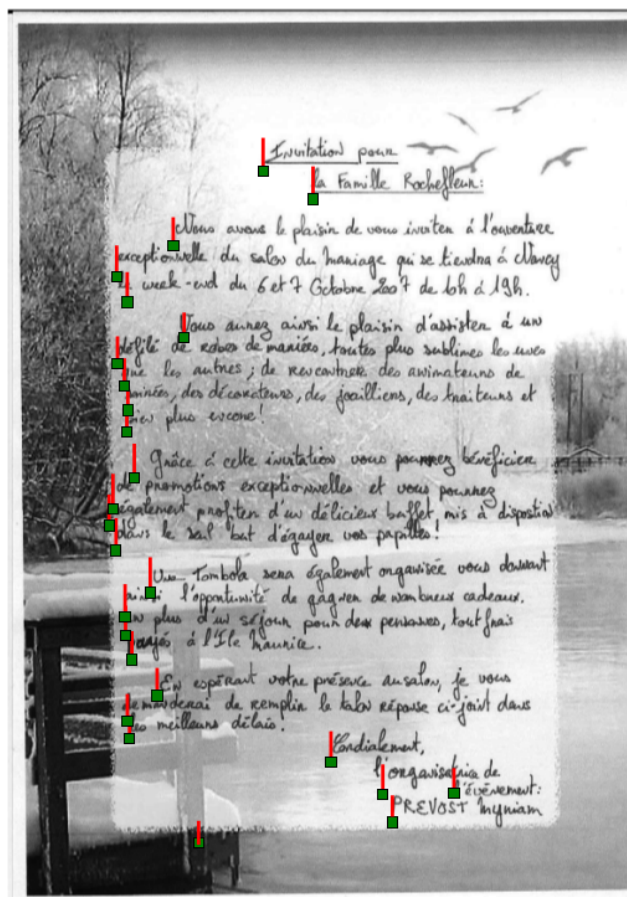 Invitation pour
la Famille Rochefleur:
Nous avons le plaisir de vous inviter à l'ouverture
exceptionnelle du salon du mariage qui se tiendra à Nancy
le week-end du 6 et 7 Octobre 2007 de 10h à 19h.
Vous aurez ainsi le plaisir d'assister à un
défilé de robes de mariées, toutes plus sublimes les unes
que les autres; de rencontrer des animateurs de
soirées, des décorateurs, des joailliers, des traiteurs et
bien plus encore!
Grâce à cette invitation vous pourrez bénéficier
de promotions exceptionnelles et vous pourrez
également profiter d'un délicieux buffet mis à disposition
dans le seul but d'égayer vos papilles!
Une Tombola sera également organisée vous donnant
ainsi l'opportunité de gagner de nombreux cadeaux.
en plus d'un séjour pour deux personnes, tout frais
payés à l'Ile Maurice.
En espérant votre présence au salon, je vous
demanderai de remplir le talon réponse ci-joint dans
les meilleurs délais.
Cordialement,
l'organisatrice de
l'événement:
PREVOST Myriam